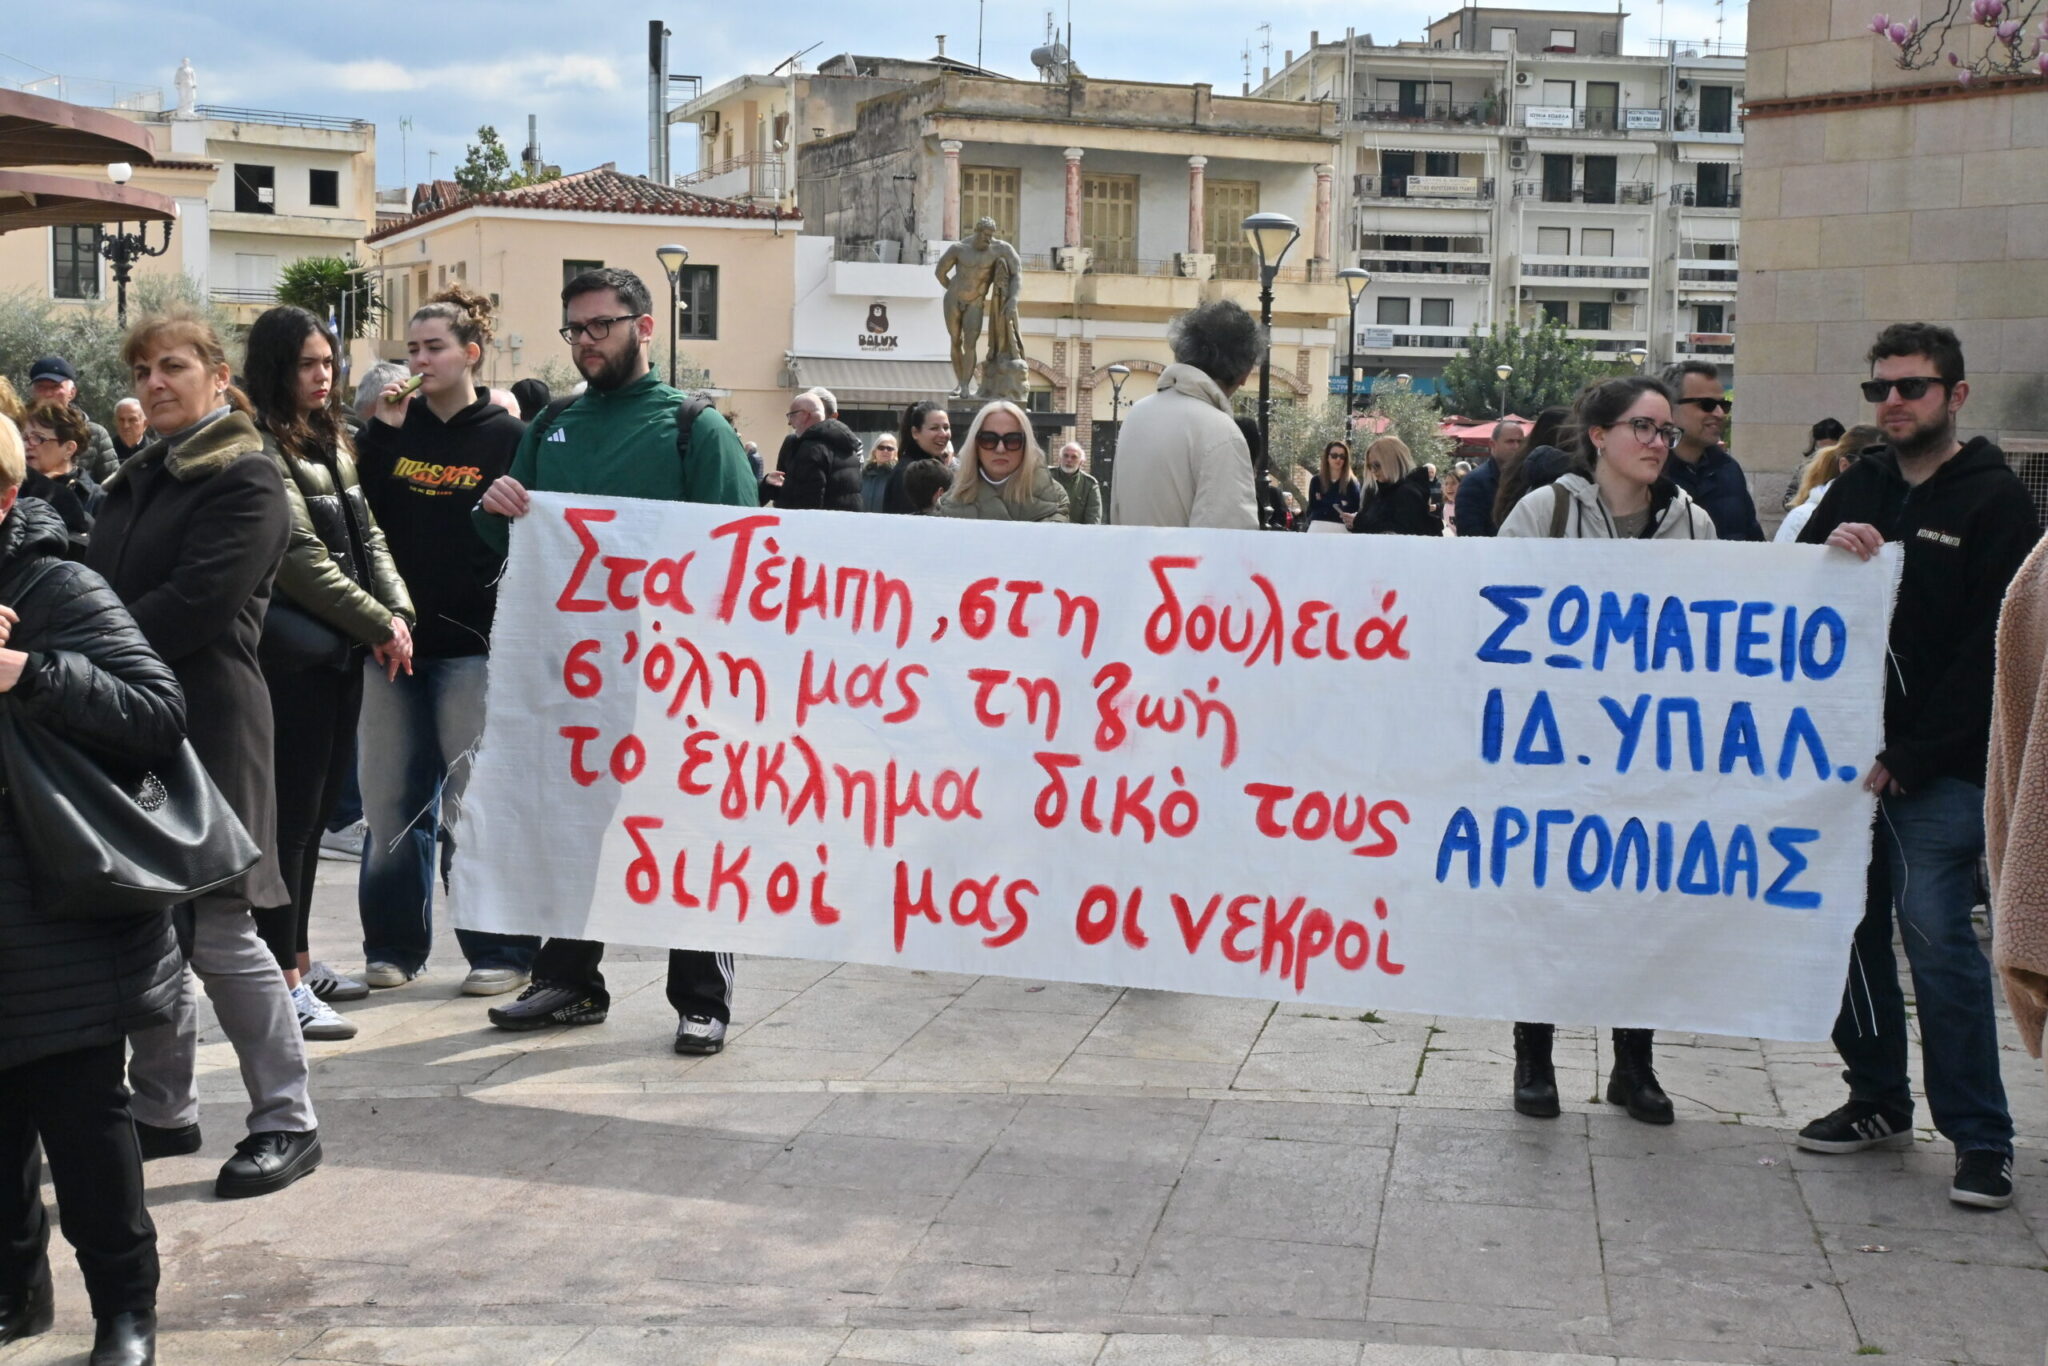 Στα Τέμπη, στη δουλειά
σ' όλη μας τη ζωή
το έγκλημα δικό τους
δικοί μας οι νεκροί
ΣΩΜΑΤΕΙΟ
ΙΔ. ΥΠΑΛ.
ΑΡΓΟΛΙΔΑΣ
BALUX
ΚΟΙΝΟΙ ΘΝΗΤΟΙ